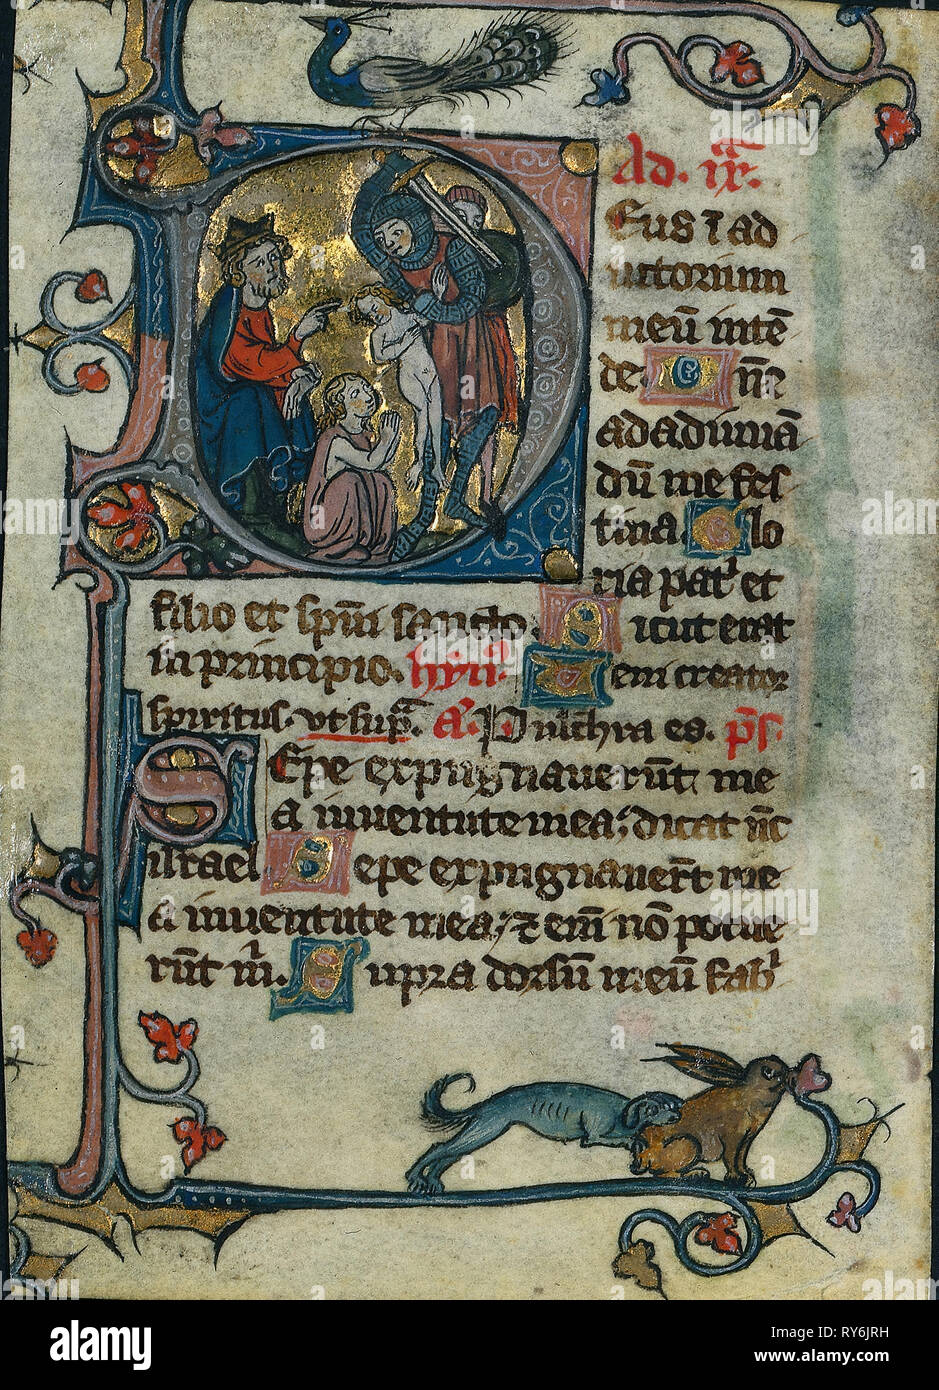 Ad. ix.
Eus ī ad
iutorium
meū intē
de. Dn̄e
ad adiuuā
dū me fes
tina. Glo
ria pat͛ et
filio et sp̄ui sancto. Sicut erat
in principio. hyn͛. Veni creator
spiritus. vt sup͛. a͛. Pulchra es. p̄s.
Sepe expugnauerūt me
a iuuentute mea; dicat nūc
israel Sepe expugnauer̄t me
a iuuentute mea; ⁊ enī nō potue
rūt m̄. Supra dorsū meū fab͛
alamy
Image ID: RY6JRH
www.alamy.com